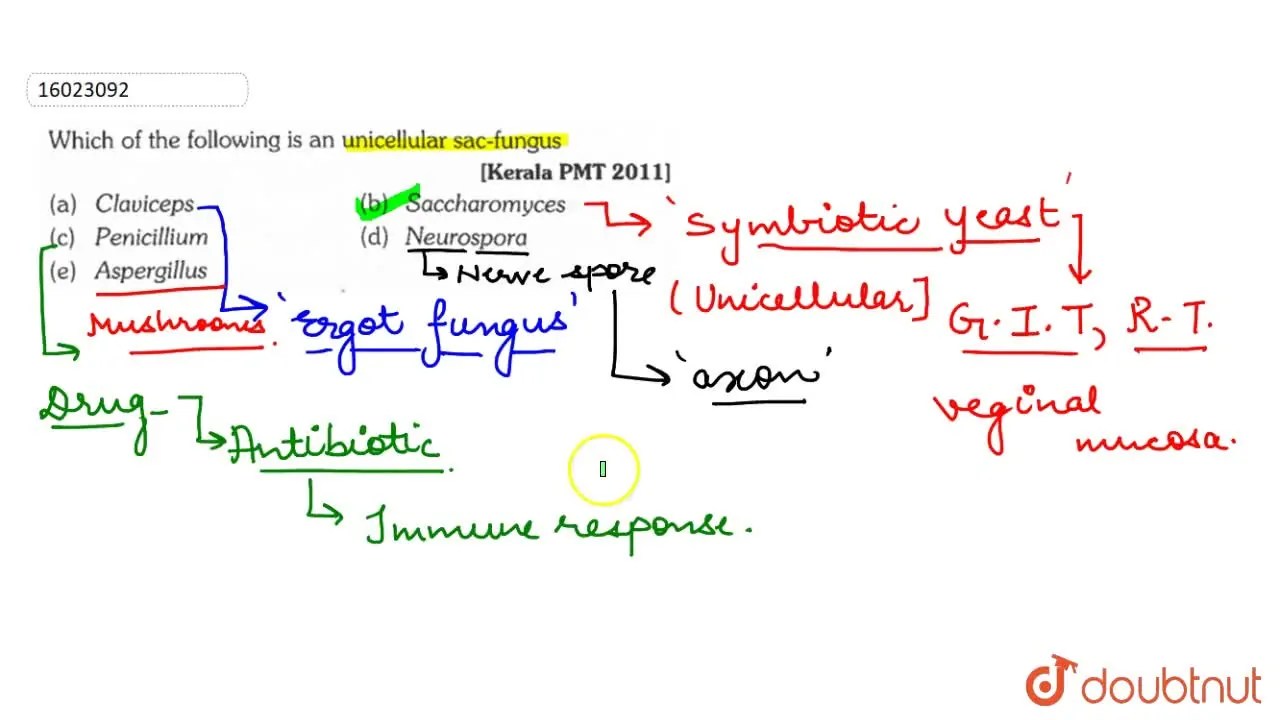 16023092
Which of the following is an unicellular sac-fungus
[Kerala PMT 2011]
(a) Claviceps (b) Saccharomyces
(c) Penicillium (d) Neurospora
(e) Aspergillus
'Symbiotic yeast'
(Unicellular]
G.I.T, R.T.
veginal
mucosa.
Nerve spore
'axon'
Mushrooms.
'Ergot fungus'
Drug
Antibiotic.
Immune response.
doubtnut